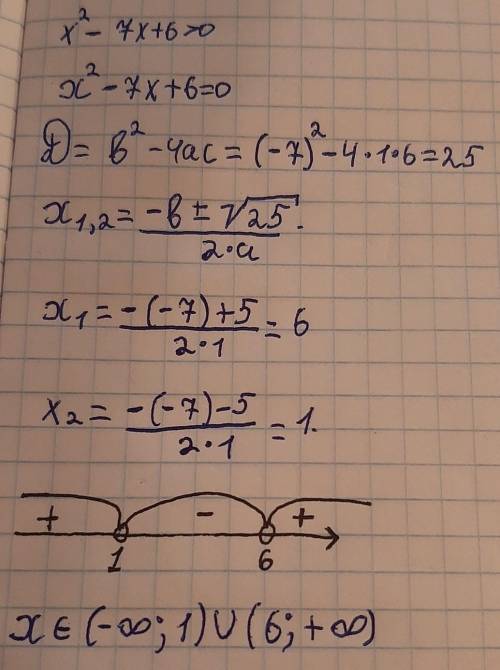 x² - 7x+6>0
x² - 7x+6=0
D = b² - 4ac = (-7)² - 4·1·6 = 25
x₁,₂ = (-b ± √25)/(2·a).
x₁ = (-(-7)+5)/(2·1) = 6
x₂ = (-(-7)-5)/(2·1) = 1.
+ - +
1 6
x ∈ (-∞; 1) ∪ (6; +∞)